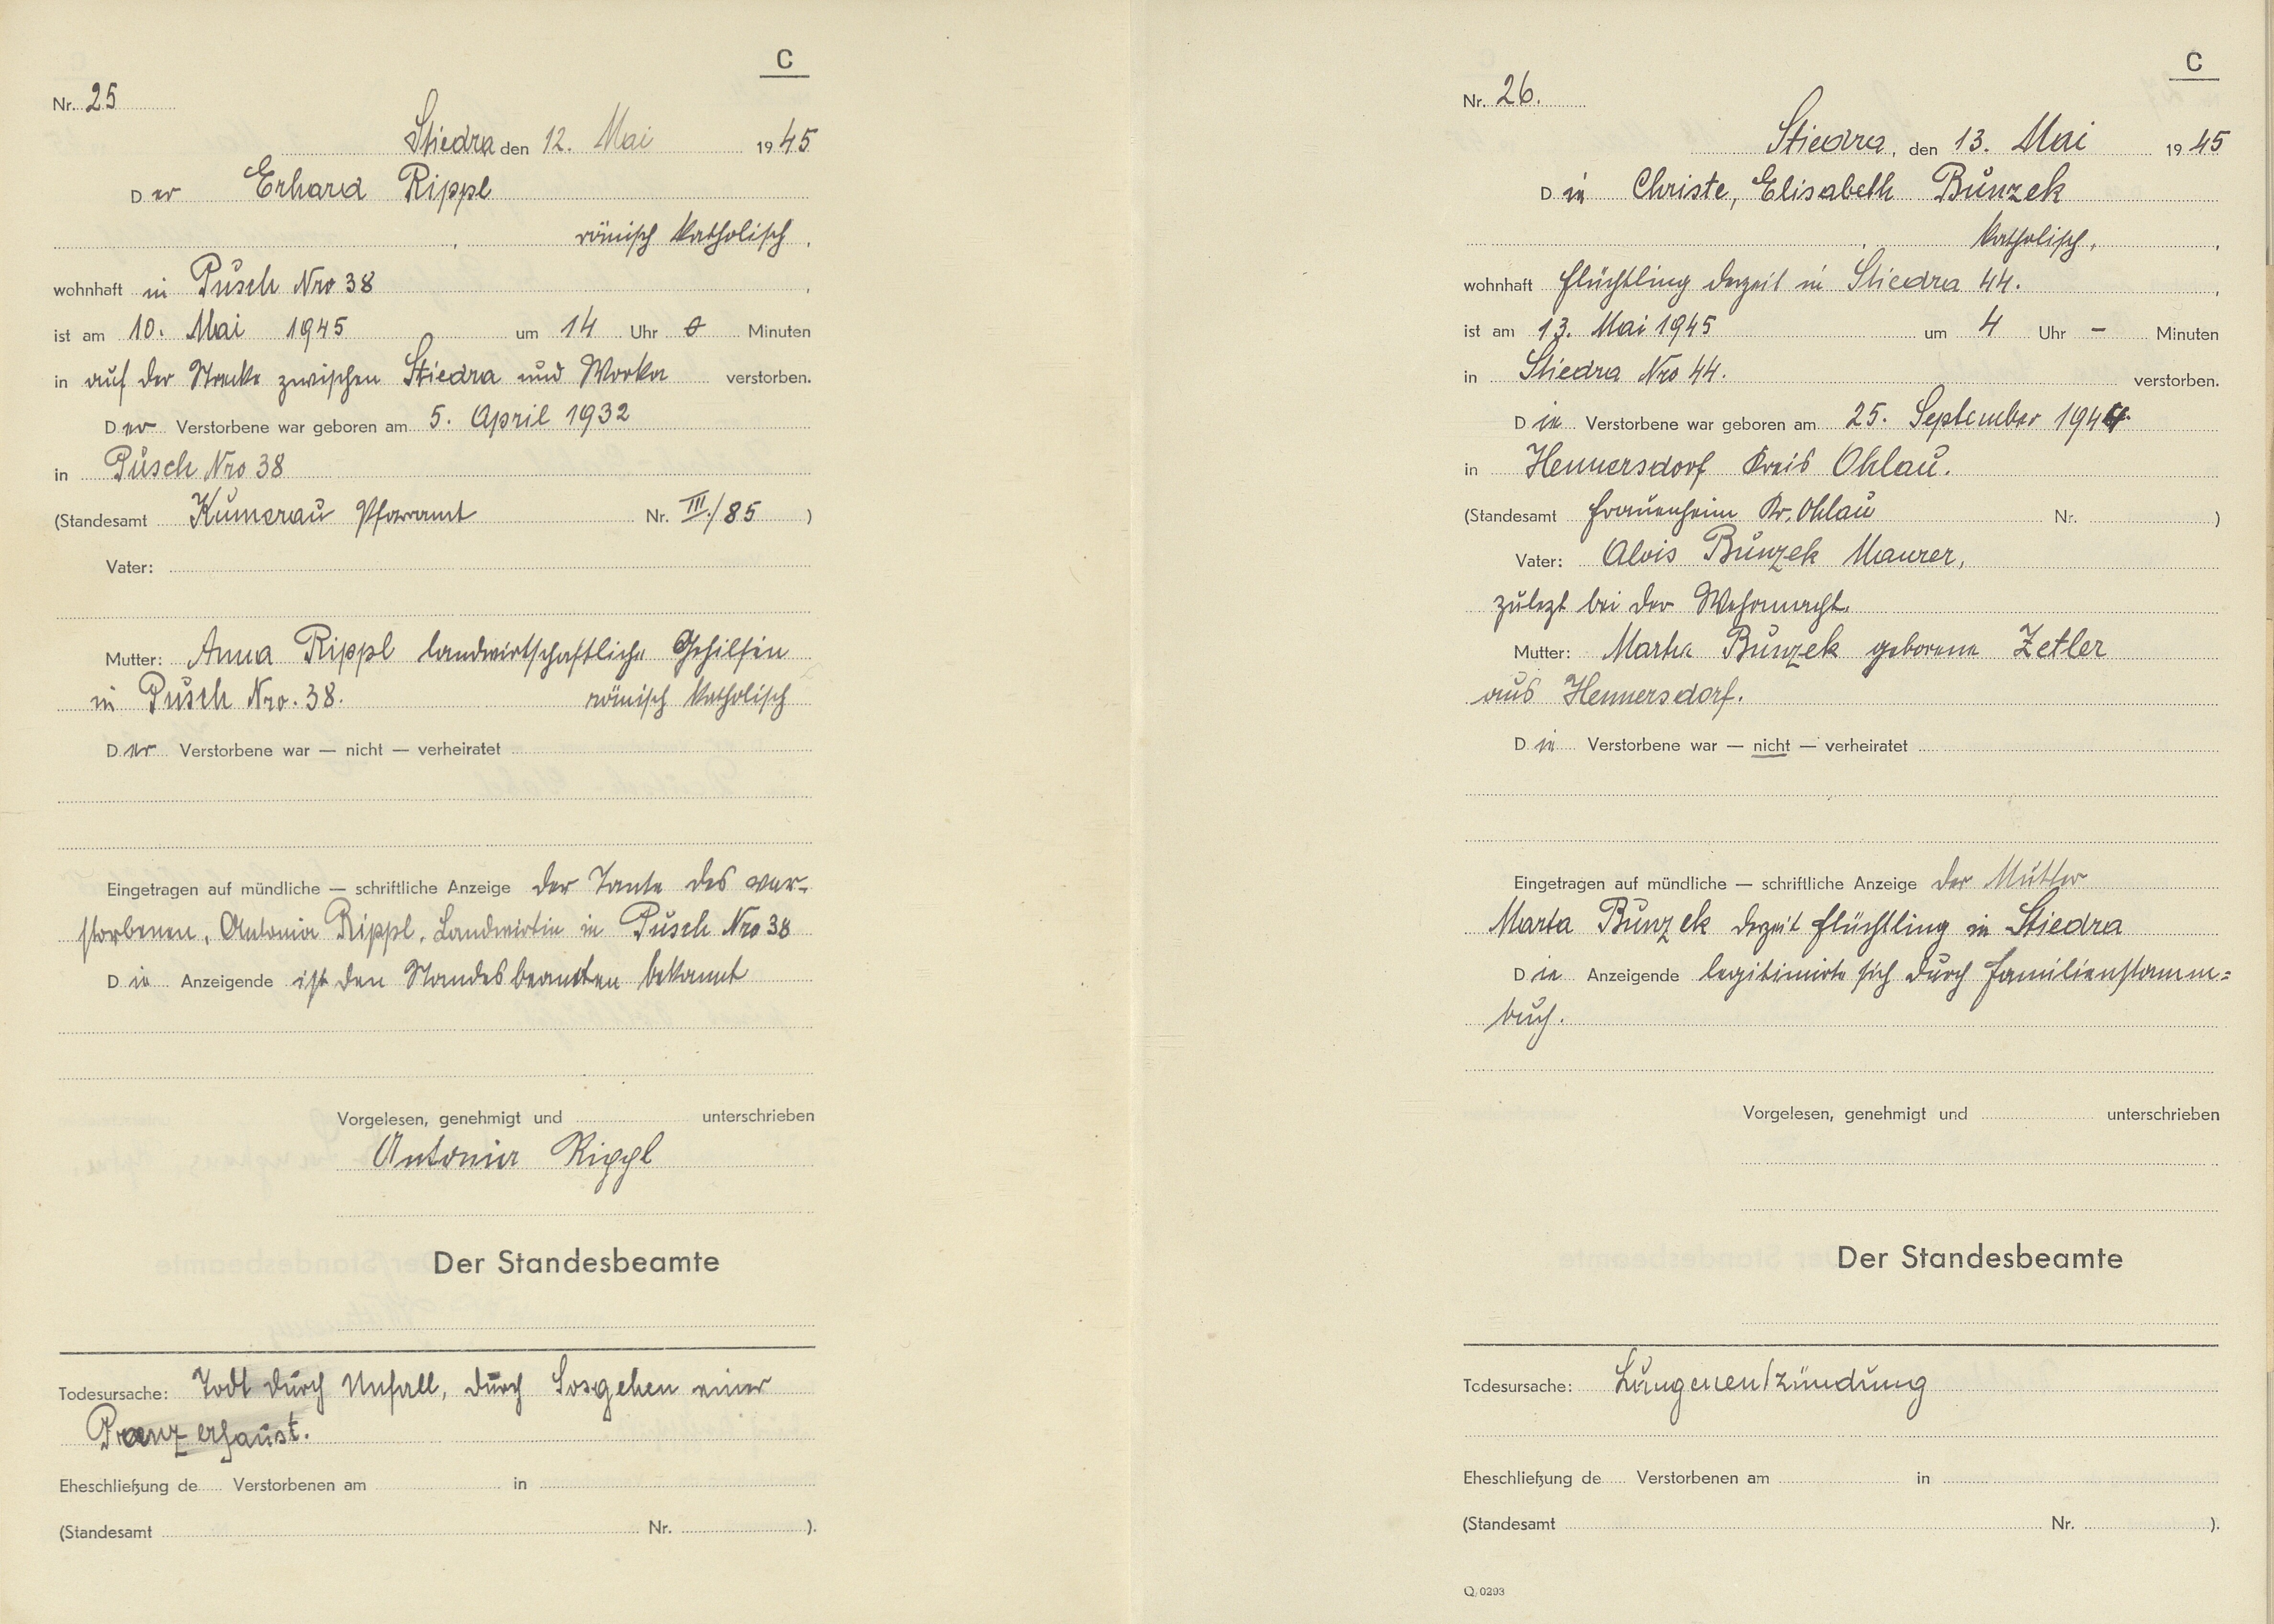 C
Nr. 25
Stiedra den 12. Mai 1945
Der Erhard Rippl
, römisch katholisch,
wohnhaft in Pusch Nro 38,
ist am 10. Mai 1945 um 14 Uhr 0 Minuten
in auf der Strecke zwischen Stiedra und Worka verstorben.
Der Verstorbene war geboren am 5. April 1932
in Pusch Nro 38
(Standesamt Kumerau Pfarramt Nr. III./85)
Vater:
Mutter: Anna Rippl landwirtschaftliche Gehilfin
in Pusch Nro. 38. römisch katholisch
Der Verstorbene war — nicht — verheiratet
Eingetragen auf mündliche — schriftliche Anzeige der Tante des ver-
storbenen, Antonia Rippl, Landwirtin in Pusch Nro 38
Die Anzeigende ist den Standesbeamten bekannt
Vorgelesen, genehmigt und unterschrieben
Antonia Rippl
Der Standesbeamte
Todesursache: Todt durch Unfall, durch Losgehen einer
Pranzerfaust.
Eheschließung de Verstorbenen am in
(Standesamt Nr. ).
C
Nr. 26.
Stiedra, den 13. Mai 1945
Die Christe, Elisabeth Bunzek
, katholisch.,
wohnhaft Flüchtling derzeit in Stiedra 44.,
ist am 13. Mai 1945 um 4 Uhr – Minuten
in Stiedra Nro 44. verstorben.
Die Verstorbene war geboren am 25. September 1944.
in Hennersdorf Kreis Ohlau.
(Standesamt Frauenheim Kr. Ohlau Nr. )
Vater: Alois Bunzek Maurer,
zulezt bei der Wehrmacht.
Mutter: Martha Bunzek geborene Zetler
aus Hennersdorf.
Die Verstorbene war — nicht — verheiratet
Eingetragen auf mündliche — schriftliche Anzeige der Mutter
Marta Bunzek derzeit Flüchtling in Stiedra
Die Anzeigende legitimirte sich durch Familienstamm=
buch.
Vorgelesen, genehmigt und unterschrieben
Der Standesbeamte
Todesursache: Lungenentzündung
Eheschließung de Verstorbenen am in
(Standesamt Nr. ).
Q 0293